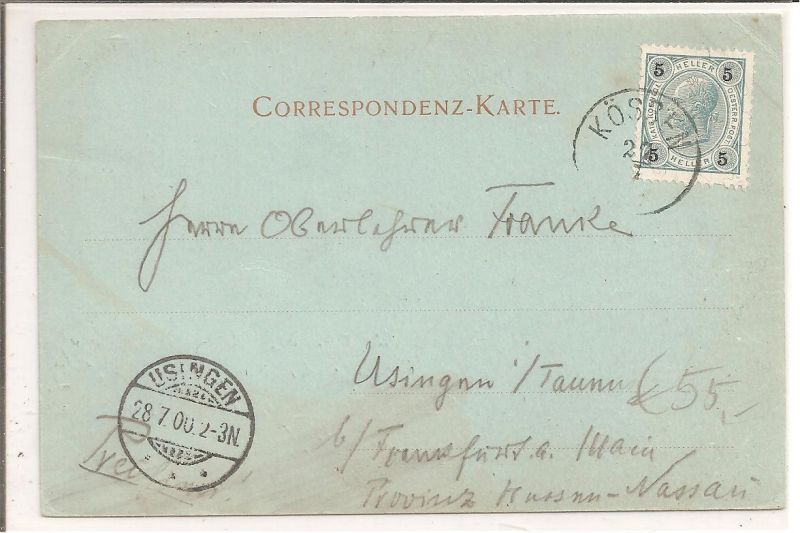 CORRESPONDENZ-KARTE.
5 HELLER 5
KAIS. KOENIGL. OESTERR. POST.
5 HELLER 5
KÖSSEN
Herrn Oberlehrer Franke
Usingen i/Taunus
b/ Frankfurt a. Main
Provinz Hessen-Nassau
55,-
USINGEN
28.7.00.2-3N.